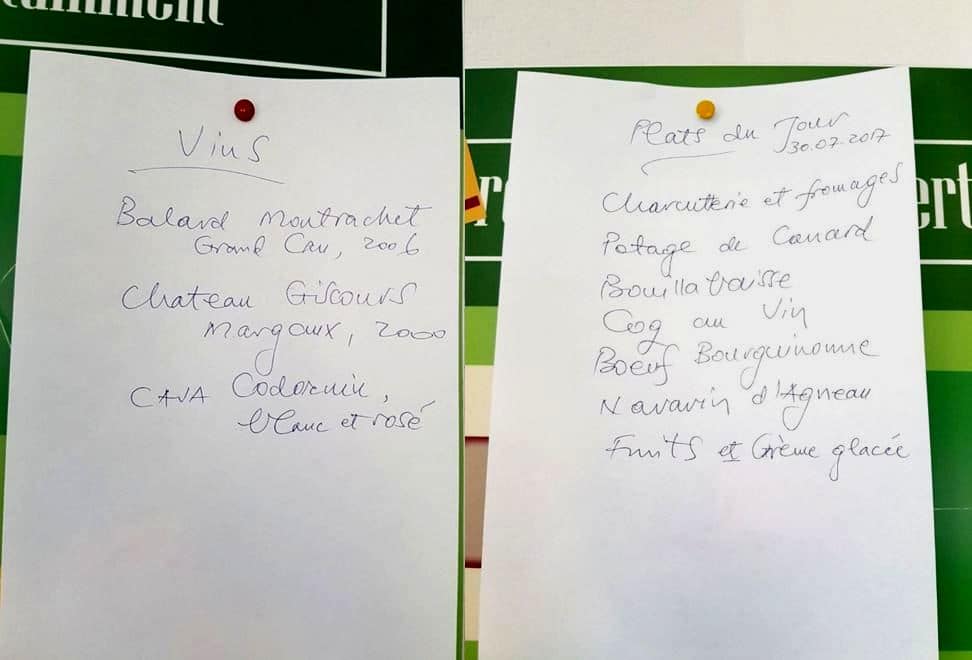 Vins
Balard Montrachet
Grand Cru, 2006
Chateau Giscours
Margaux, 2000
CAVA Codorniu,
blanc et rosé
Plats du Jour
30.07.2017
Charcutterie et fromages
Potage de Canard
Bouillabaisse
Coq au Vin
Boeuf Bourguinonne
Navarin d'Agneau
Fruits et Crème glacée